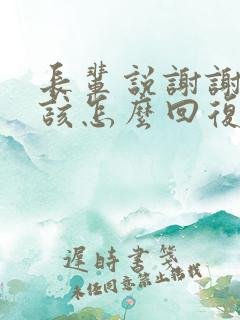 長輩説謝謝
該怎麼回復
遲時書箋
未经同意禁止搭找